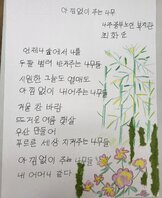 아낌없이 주는 나무
언제나 숲에서 나를
두 팔 벌려 반겨주는 나무들
시원한 그늘도 열매도
아낌없이 내어주는 나무들
겨울 찬 바람
뜨거운 여름 햇살
우산 만들어
푸르른 세상 지켜주는 나무들
아낌없이 주는 나무들
내 어머니 같다